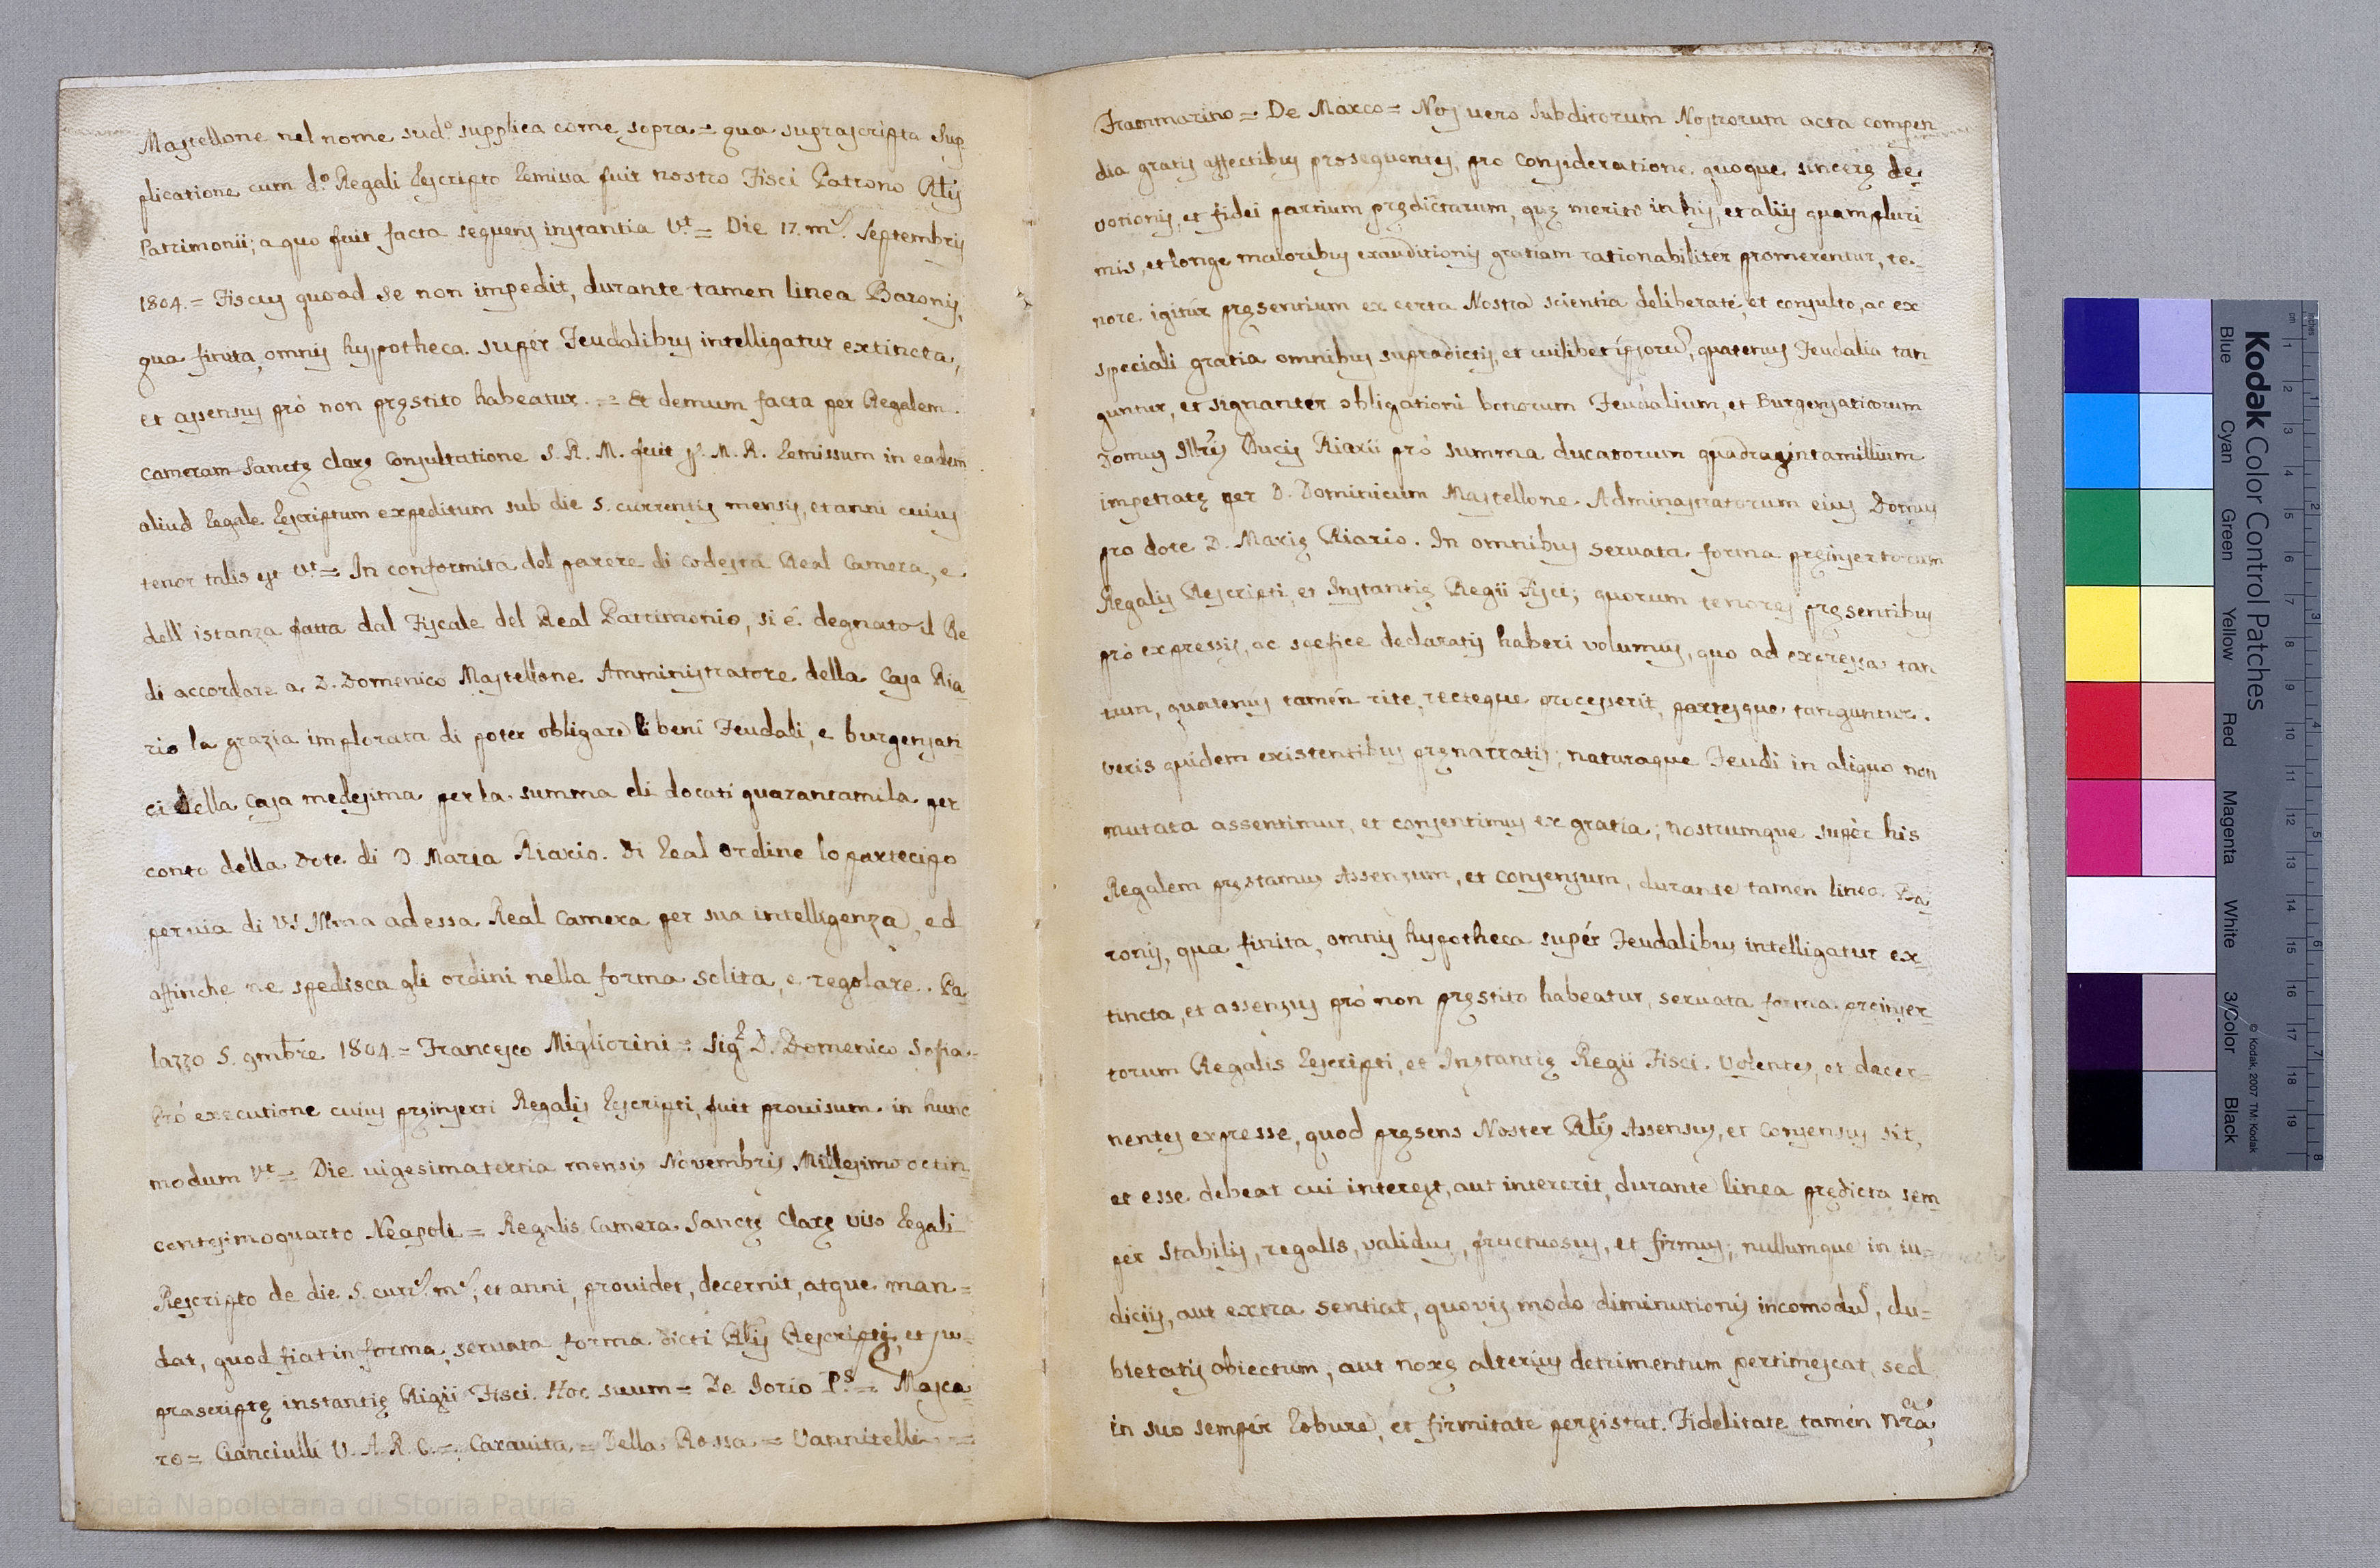 Mastellone nel nome sud.º supplica come sopra = qua suprascripta sup
plicatione cum d.º Regali Rescripto Remissa fuit nostro Fisci Patrono Rlis
Patrimonii; a quo fuit facta sequens instantia Vt = Die 17. m.s Septembris
1804. = Fiscus quoad se non impedit, durante tamen linea Baronis,
qua finita, omnis hypotheca super Feudalibus intelligatur extincta,
et assensus prò non pręstito habeatur. = Et demum facta per Regalem
Cameram Sanctę Clarę Consultatione S. R. M. fuit p. M. R. Remissum in eadem
aliud Regale Rescriptum expeditum sub die 5. currentis mensis, et anni cuius
tenor talis est Vt = In conformità del parere di codesta Real Camera, e
dell' istanza fatta dal Fiscale del Real Patrimonio, si è degnato il Re
di accordare a D. Domenico Mastellone Amministratore della Casa Ria
rio la grazia implorata di poter obligare li beni Feudali, e burgensati
ci della Casa medesima per la summa di docati quarantamila per
conto della Dote di D. Maria Riario. Di Real ordine lo partecipo
per via di VS Illma ad essa Real Camera per sua intelligenza, ed
affinche ne spedisca gli ordini nella forma solita, e regolare. Pa
lazzo 5. 9mbre 1804 = Francesco Migliorini = Sig.r D. Domenico Sofia =
Prò executione cuius pręinserti Regalis Rescripti, fuit provisum in hunc
modum Vt = Die vigesimatertia mensis Novembris Millesimo octin
centesimoquarto Neapoli = Regalis Camera Sanctę Clarę viso Regali
Rescripto de die 5. curr.s m.s, et anni, providet, decernit, atque man =
dat, quod fiat in forma, servata forma dicti Rlis Rescripti, et su =
prascriptę instantię Rigii Fisci. Hoc suum = De Jorio P.S = Masca
ro = Cianciulli V. A. R. C. = Caravita = Della Rossa = Vannitelli =
Frammarino = De Marco = Nos vero Subditorum Nostrorum acta compen
dia gratis affectibus prosequentes, pro Consideratione quoque sincerę de
votionis, et fidei partium prędictarum, quę merito in his, et aliis quampluri
mis, et longe maioribus exauditionis gratiam rationabiliter promerentur, te =
nore igitur pręsentium ex certa Nostra scientia deliberatè, et consulto, ac ex
speciali gratia omnibus supradictis, et cuilibet ipsorum, quatenus Feudalia tan
guntur, et signanter obligationi bonorum Feudalium, et Burgensaticorum
Domus Illris Ducis Riarii prò summa ducatorum quadragintamillium
impetratę per D. Dominicum Mastellone Adminastratorum eius Domus
pro dote D. Marię Riario. In omnibus servata forma pręinsertorum
Regalis Rescripti, et Instantię Regii Fisci; quorum tenores pręsentibus
prò expressis, ac spefice declaratis haberi volumus, quo ad expressa tan
tum, quatenus tamèn rite, recteque processerit, partesque tanguntur.
veris quidem existentibus pręnarratis; naturaque Feudi in aliquo non
mutata assentimur, et consentimus ex gratia; nostrumque supèr his
Regalem pręstamus Assensum, et consensum, durante tamen linea Ba
ronis, qua finita, omnis hypotheca supér Feudalibus intelligatur ex
tincta, et assensus prò non pręstito habeatur, servata forma preinser
torum Regalis Rescripti, et Instantię Regii Fisci. Volentes, et decer =
nentes expresse, quod pręsens Noster Rlis Assensus, et Consensus sit,
et esse debeat cui interest, aut intererit, durante linea prędicta sem
pér stabilis, regalis, validus, fructuosus, et firmus; nullumque in iu =
diciis, aut extra sentiat, quovis modo diminutionis incomodum, du =
bietatis obiectum, aut noxę alterius detrimentum pertimescat, sed
in suo sempér Robure, et firmitate persistat. Fidelitate tamén nrã,
Società Napoletana di Storia Patria
Kodak Color Control Patches
Blue Cyan Green Yellow Red Magenta White 3/Color Black
© Kodak, 2007 TM: Kodak